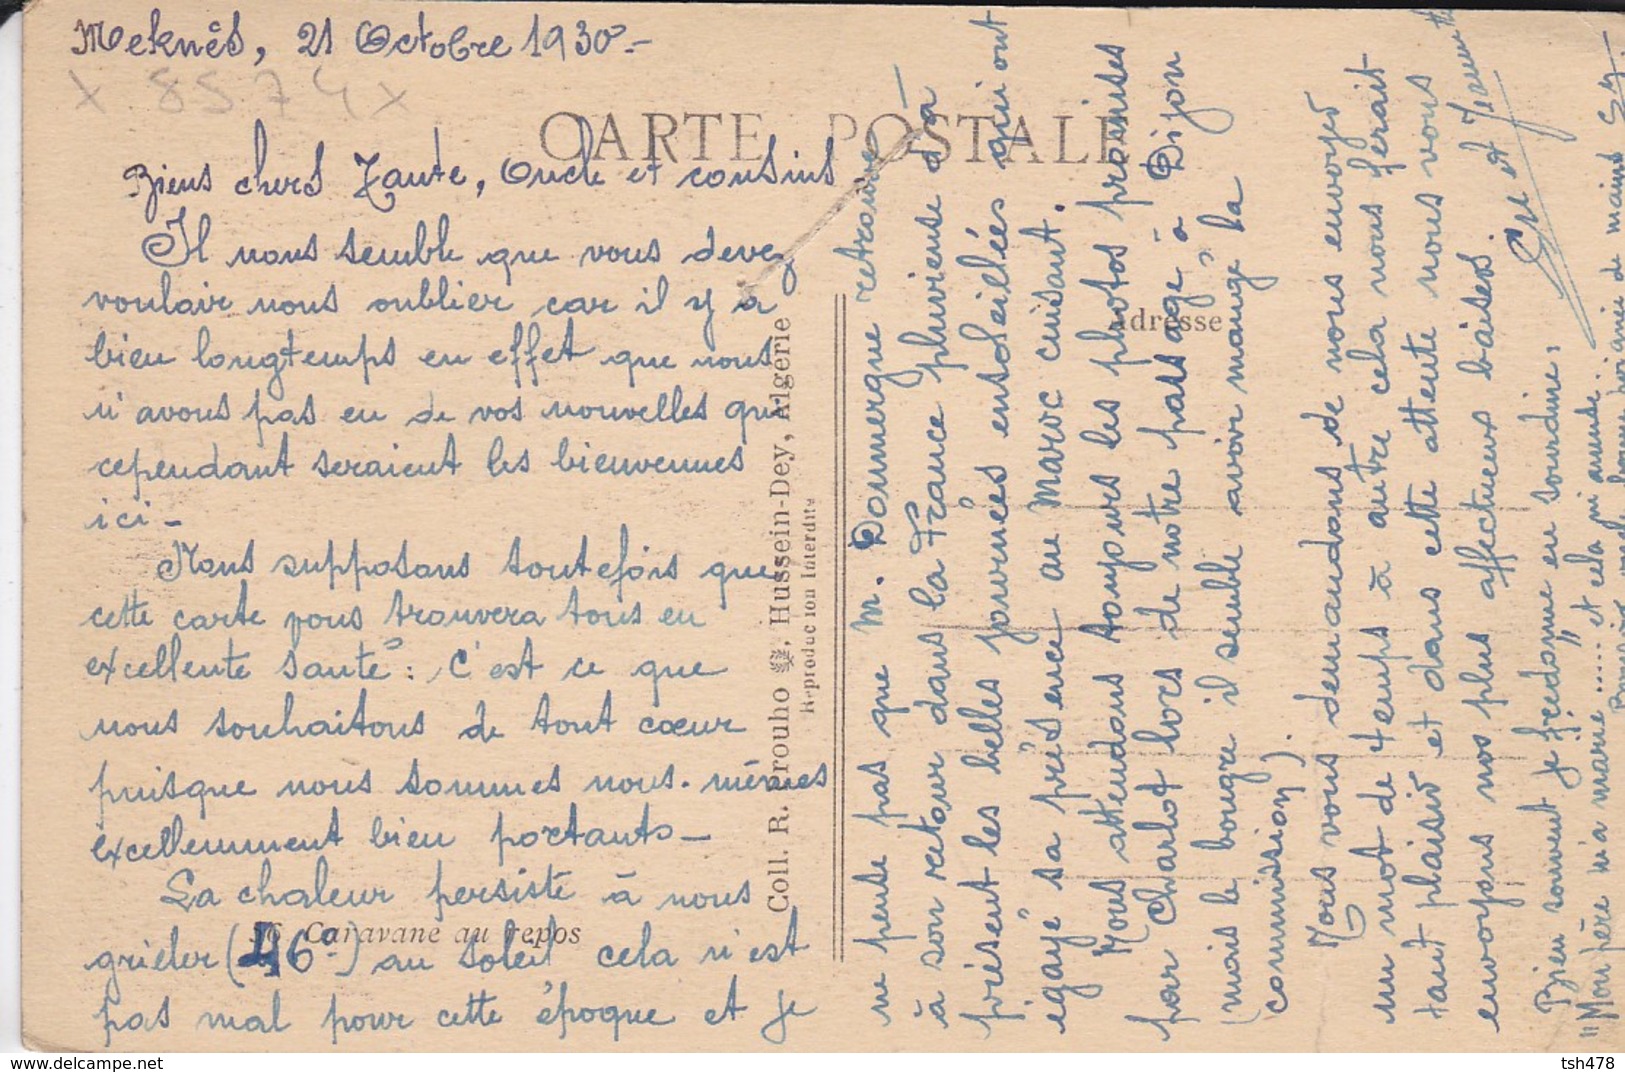 Meknès, 21 Octobre 1930.-
x 8574 x
CARTE POSTALE
Biens chers Tante, Oncle et cousins
Il nous semble que vous devez
vouloir nous oublier car il y a
bien longtemps en effet que nous
n'avons pas eu de vos nouvelles qui
cependant seraient les bienvenues
ici -
Nous supposons toutefois que
cette carte vous trouvera tous en
excellente santé : c'est ce que
nous souhaitons de tout cœur
puisque nous sommes nous-mêmes
excellemment bien portants -
La chaleur persiste à nous
griller (46°) au soleil cela n'est
pas mal pour cette époque et je
36 Caravane au repos
Coll. R. Prouho, Hussein-Dey, Algérie
Reproduction interdite
Adresse
ne pense pas que M. Doumergue retrouve
à son retour dans la France pluvieuse d'à
présent les belles journées ensoleillées qui ont
égayé sa présence au Maroc cuisant.
Nous attendons toujours les photos promises
par Charlot lors de notre passage à Dijon
(mais le bougre il semble avoir mangé la
commission).
Nous vous demandons de nous envoyer
un mot de temps à autre cela nous ferait
tant plaisir et dans cette attente nous vous
envoyons nos plus affectueux baisers.
et
Bien souvent je fredonne en sourdine :
"Mon père m'a marié ..... et cela m'amuse.